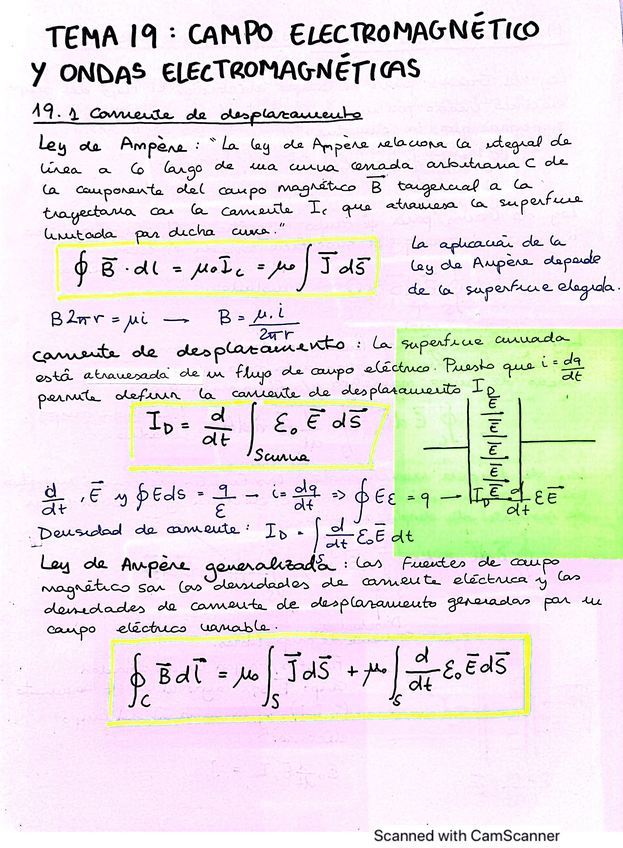 TEMA 19: CAMPO ELECTROMAGNÉTICO
Y ONDAS ELECTROMAGNÉTICAS
19.1 Corriente de desplazamiento
Ley de Ampère: "La ley de Ampère relaciona la integral de
línea a lo largo de una curva cerrada arbitraria C de
la componente del campo magnético B⃗ tangencial a la
trayectoria con la corriente Ic que atraviesa la superficie
limitada por dicha curva."
∮ B⃗ · dl = μ₀ I⃗c = μ₀ ∫ J⃗ ds⃗
La aplicación de la
ley de Ampère depende
de la superficie elegida.
B2πr = μi → B = μ·i / 2πr
Corriente de desplazamiento: La superficie curvada
está atravesada de un flujo de campo eléctrico. Puesto que i = dq/dt
permite definir la corriente de desplazamiento I_D
I_D = d/dt ∫Scurva ε₀ E⃗ ds⃗
E⃗
E⃗
E⃗
E⃗
E⃗
d/dt , E⃗ y ∮Eds = q/ε → i = dq/dt ⇒ ∮Eε = q → I_D = d/dt εE⃗
Densidad de corriente: I_D = ∫s d/dt ε₀E⃗ dt
Ley de Ampère generalizada: las fuentes de campo
magnético son las densidades de corriente eléctrica y las
densidades de corriente de desplazamiento generadas por un
campo eléctrico variable.
∮C B⃗ dl⃗ = μ₀ ∫S J⃗ dS⃗ + μ₀ ∫S d/dt ε₀ E⃗ dS⃗
Scanned with CamScanner